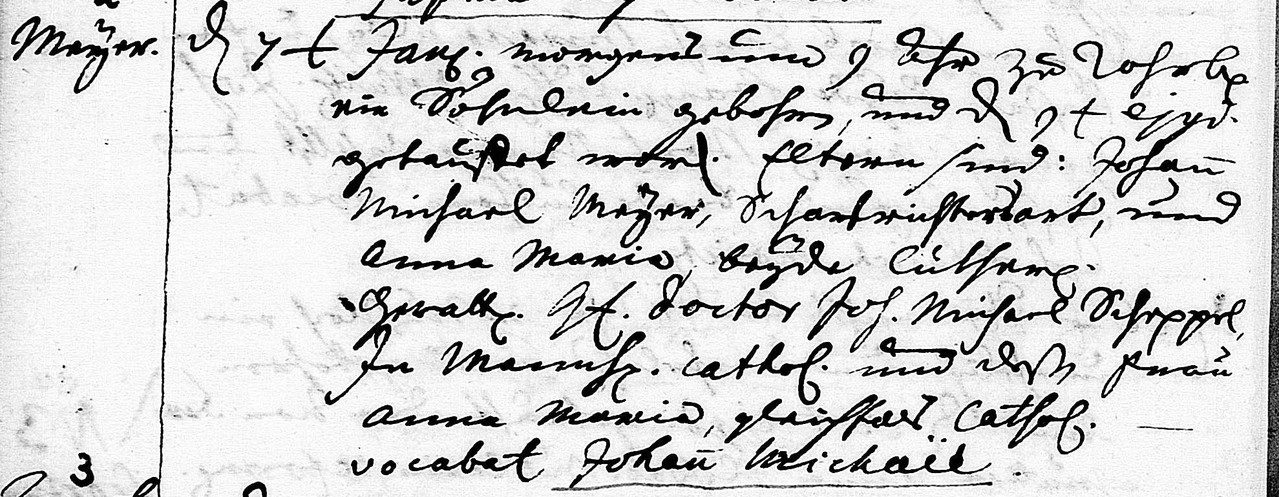 Meÿer. d 7t Janr. morgens um 9 Uhr zu Rohrb.
ein Söhnlein gebohren, und d 9t ejusd.
getauffet word. Eltern sind: Johan̄
Michael Meÿer, Scharfrichtersart, und
Anna Maria, beÿde Luther.
Gevatt. H. Doctor Joh. Michael Scheppel,
In Mannh. cathol. und deßen Frau
Anna Maria, gleichfals Cathol.
vocabat Johan̄ Michaël.
3